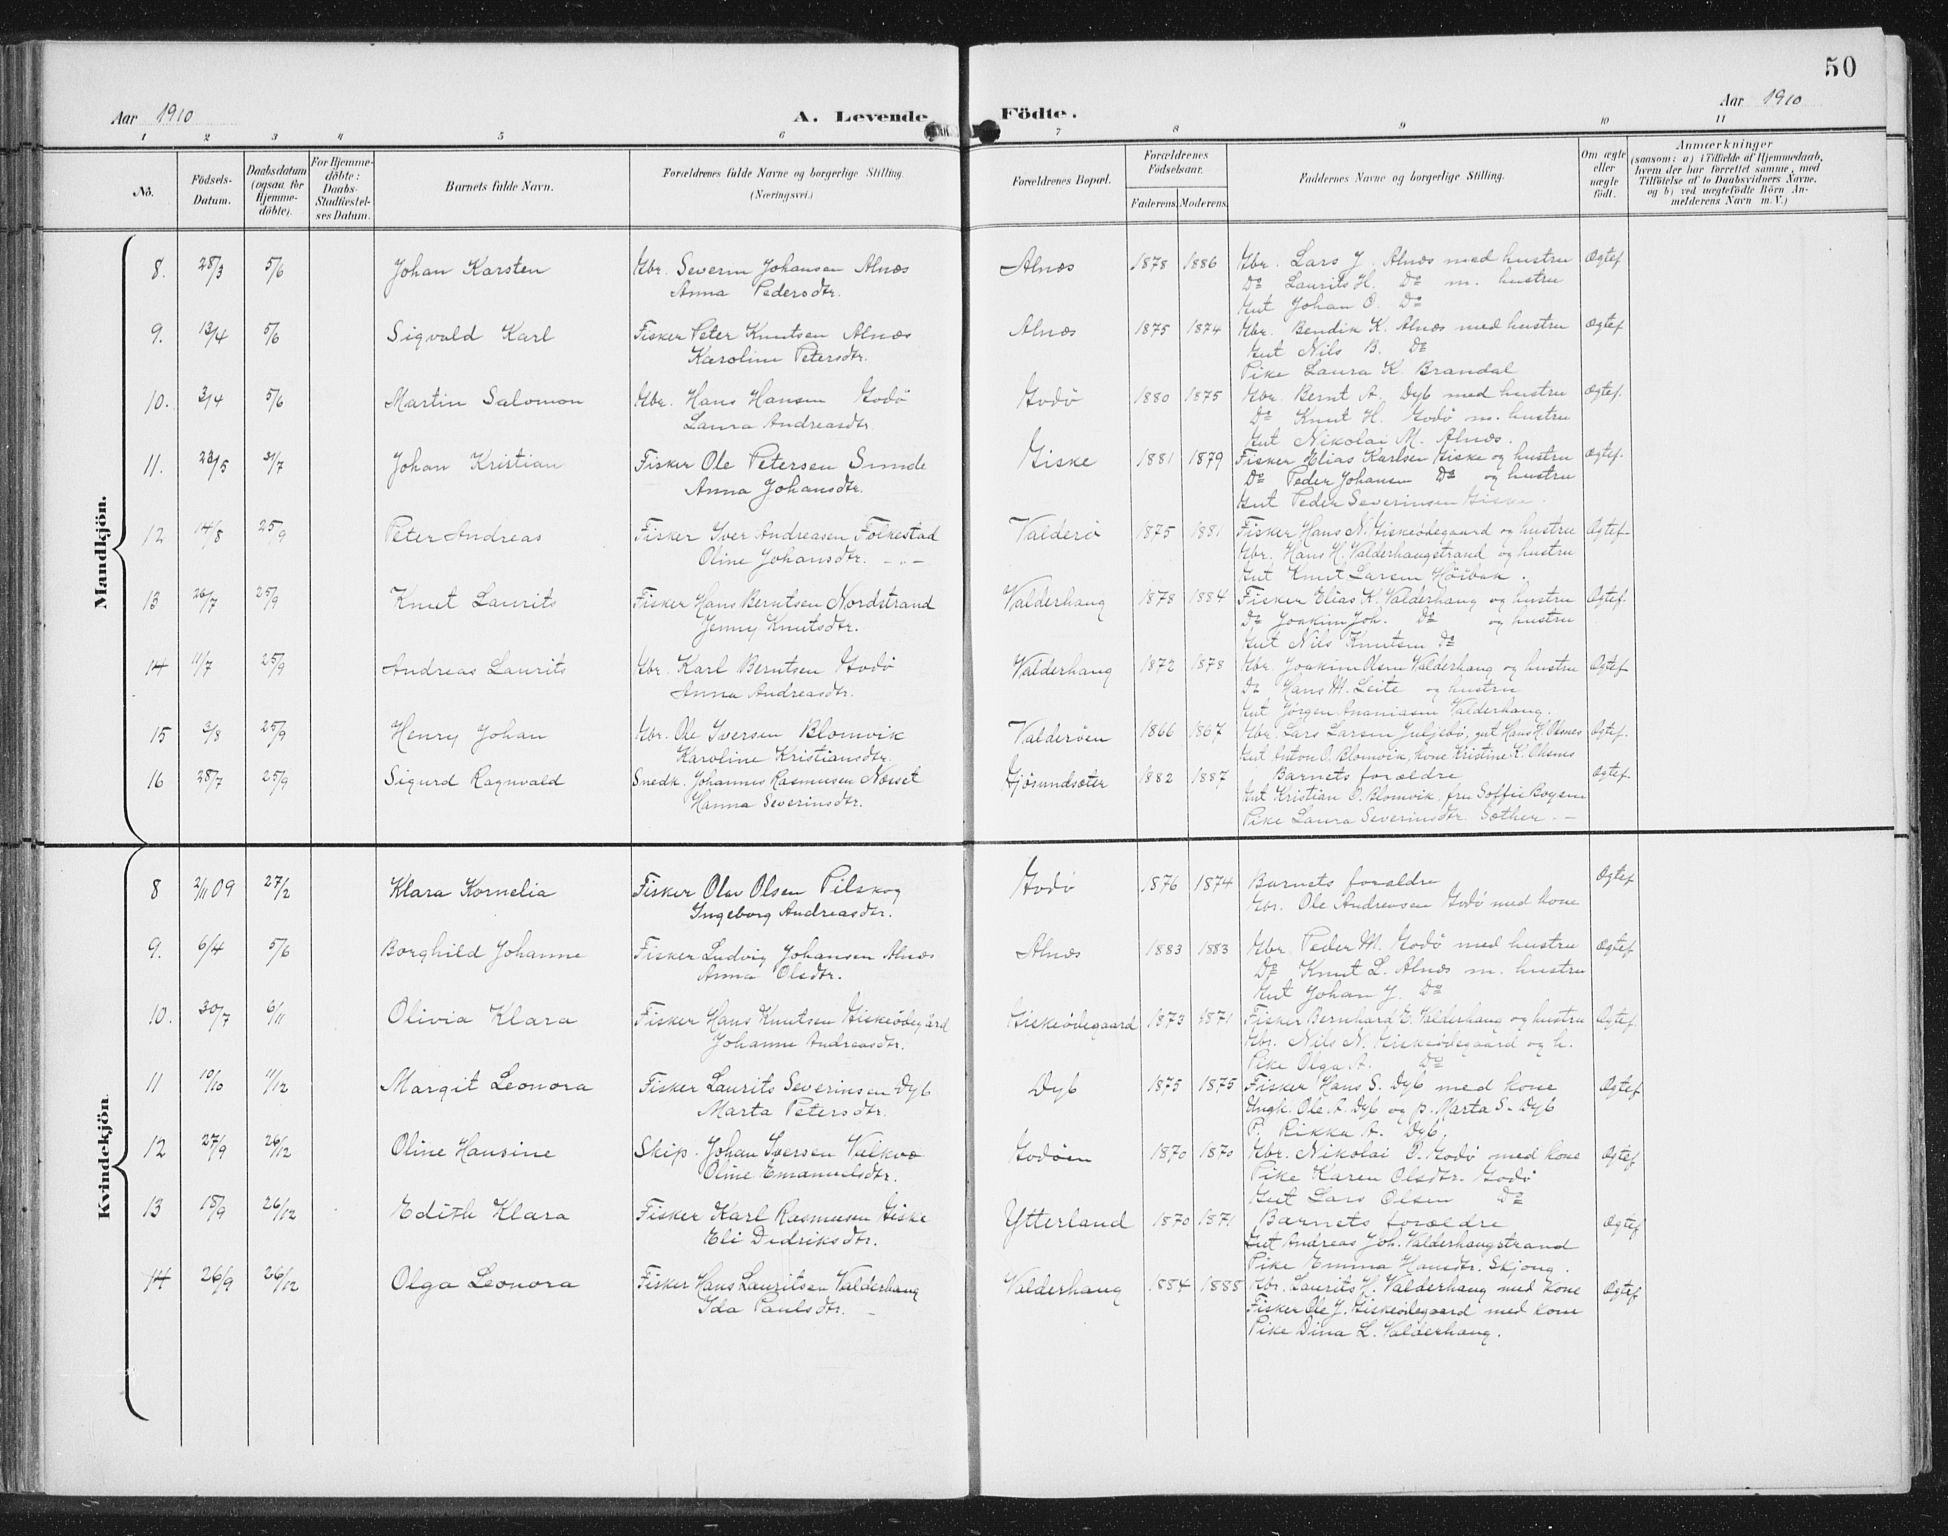 50
Aar 1910 A. Levende Födte. Aar 1910
1 2 3 4 5 6 7 8 9 10 11
No. Födsels-Datum. Daabsdatum (ogsaa for Hjemme-döbte). For Hjemme-döbte: Daabs-Stadfæstel-ses Datum. Barnets fulde Navn. Forældrenes fulde Navne og borgerlige Stilling. (Næringsvei.) Forældrenes Bopæl. Forældrenes Födselsaar. Faderens. Moderens. Faddernes Navne og borgerlige Stilling. Om ægte eller uægte födt. Anmærkninger (saasom: a) i Tilfælde af Hjemmedaab, hvem der har forrettet samme, med Tilföielse af to Daabsvidners Navne, og b) ved uægtefödte Börn Anmelderens Navn m. V.)
Mandkjön.
8. 28/3 5/6 Johan Karsten Gbr. Severin Johansen Alnæs Alnæs 1878 1886 Gbr. Lars J. Alnæs med hustru Ægtef
Anna Pedersdtr. Do Laurits H. Do m. hustru
Gut Johan O. Do
9. 13/4 5/6 Sigvald Karl Fisker Peter Knutsen Alnæs Alnæs 1875 1874 Gbr. Bendik K. Alnæs med hustru Ægtef
Karoline Petersdtr. Gut Nils B. Do
Pike Laura K. Brandal
10. 3/4 5/6 Martin Salomon Gbr. Hans Hansen Godø Godø 1880 1875 Gbr. Bernt A. Dyb med hustru Ægtef.
Laura Andreasdtr. Do Knut H. Godø m. hustru
Gut Nikolai M. Alnæs.
11. 5 31/7 Johan Kristian Fisker Ole Petersen Sunde Giske 1881 1879 Fisker Elias Karlsen Giske og hustru Ægtef.
Anna Johansdtr. Do Peder Johansen Do og hustru
Gut Peder Severinsen Giske.
12 14/8 25/9 Peter Andreas Fisker Iver Andreasen Folkestad Valderø 1875 1881 Fisker Hans N. Giskeødegaard og hustru Ægtef-
Oline Johansdtr. -"- Gbr. Hans H. Valderhaugstrand og hustru
Gut Knut Larsen Høibak.
13 26/7 25/9 Knut Laurits Fisker Hans Berntsen Nordstrand Valderhaug 1878 1884 Fisker Elias K. Valderhaug og hustru Ægtef.
Jenny Knutsdtr. Do Joakim Joh. Do og hustru
Gut Nils Knutsen Do
14 11/7 25/9 Andreas Laurits Gbr. Karl Berntsen Godø Valderhaug 1872 1878 Gbr. Joakim Olsen Valderhaug og hustru Ægtef
Anna Andreasdtr. Do Hans M. Leite og hustru
Gut Jørgen Ananiasen Valderhaug.
15 3/8 25/9 Henry Johan Gbr. Ole Iversen Blomvik Valderøen 1866 1867 Gbr. Lars Larsen gut Hans H. Ægtef.
Karoline Kristiansdtr. Gut Anton O. Blomvik, kone Kristine K.
16 28/7 25/9 Sigurd Ragnvald Snedk. Johannes Rasmussen Gjøsundsæter 1882 1887 Barnets forældre Ægtef.
Hanna Severinsdtr. Gut Kristian O. Blomvik, fru Soffie Boysen
Pike Laura Severinsdtr. Sæther. -
Kvindekjön.
8 2/11 09 27/2 Klara Kornelia Fisker Olav Olsen Pilskog Godø 1876 1874 Barnets forældre Ægtef
Ingeborg Andreasdtr. Gbr. Ole Andreassen Godø med kone
9. 6/4 5/6 Borghild Johanne Fisker Ludvig Johansen Alnæs Alnæs 1883 1883 Gbr. Peder M. Godø med hustru Ægtef
Anna Olsdtr. Do Knut L. Alnæs m. hustru
Gut Johan J. Do
10. 30/7 6/11 Olivia Klara Fisker Hans Knutsen Giskeødegård Giskeødegaard 1873 1871 Fisker Bernhard E. Valderhaug og hustru Ægtef.
Johanne Andreasdtr. Gbr. Nils N. Giskeødegaard og h.
Pike Olga A. Do
11 10/10 11/12 Margit Leonora Fisker Laurits Severinsen Dyb Dyb 1875 1875 Fisker Hans S. Dyb med kone Ægtef
Marta Petersdtr. Ungk. Ole A. Dyb og p. Marta S. Dyb
P. Rikka A. Dyb.
12 27/9 26/12 Oline Hansine Skip. Johan Iversen Godøen 1870 1870 Gbr. Nikolai P. Godø med kone Ægtef
Oline Emanuelsdtr. Pike Karen Olsdtr. Godø
Gut Lars Olsen Do
13 18/9 26/12 Edith Klara Fisker Karl Rasmussen Giske Ytterland 1870 1871 Barnets forældre Ægtef
Eli Didriksdtr. Gut Andreas Joh. Valderhaugstrand
Pike Emma Hansdtr. Skjong.
14 26/9 26/12 Olga Leonora Fisker Hans Lauritsen Valderhaug Valderhaug 1884 1888 Gbr. Laurits H. Valderhaug med kone Ægtef
Ida Paulsdtr. - Fisker Ole J. Giskeødegaard med kone
Pike Dina L. Valderhaug.